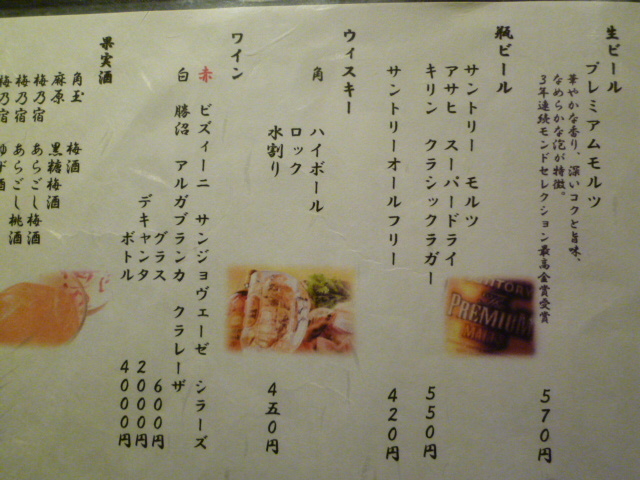 生ビール
プレミアムモルツ
華やかな香り、深いコクと旨味、
なめらかな泡が特徴。
3年連続モンドセレクション最高金賞受賞
570円
瓶ビール
サントリー モルツ
アサヒ スーパードライ
キリン クラシックラガー
550円
サントリーオールフリー
420円
PREMIUM
ウィスキー
角 ハイボール
ロック
水割り
450円
ワイン
赤 ビズィーニ サンジョヴェーゼ シラーズ
白 勝沼 アルガブランカ クラレーザ
グラス 600円
デキャンタ 2000円
ボトル 4000円
果実酒
角玉 梅酒
麻原 黒糖梅酒
梅乃宿 あらごし梅酒
梅乃宿 あらごし桃酒
梅乃宿 ゆず酒